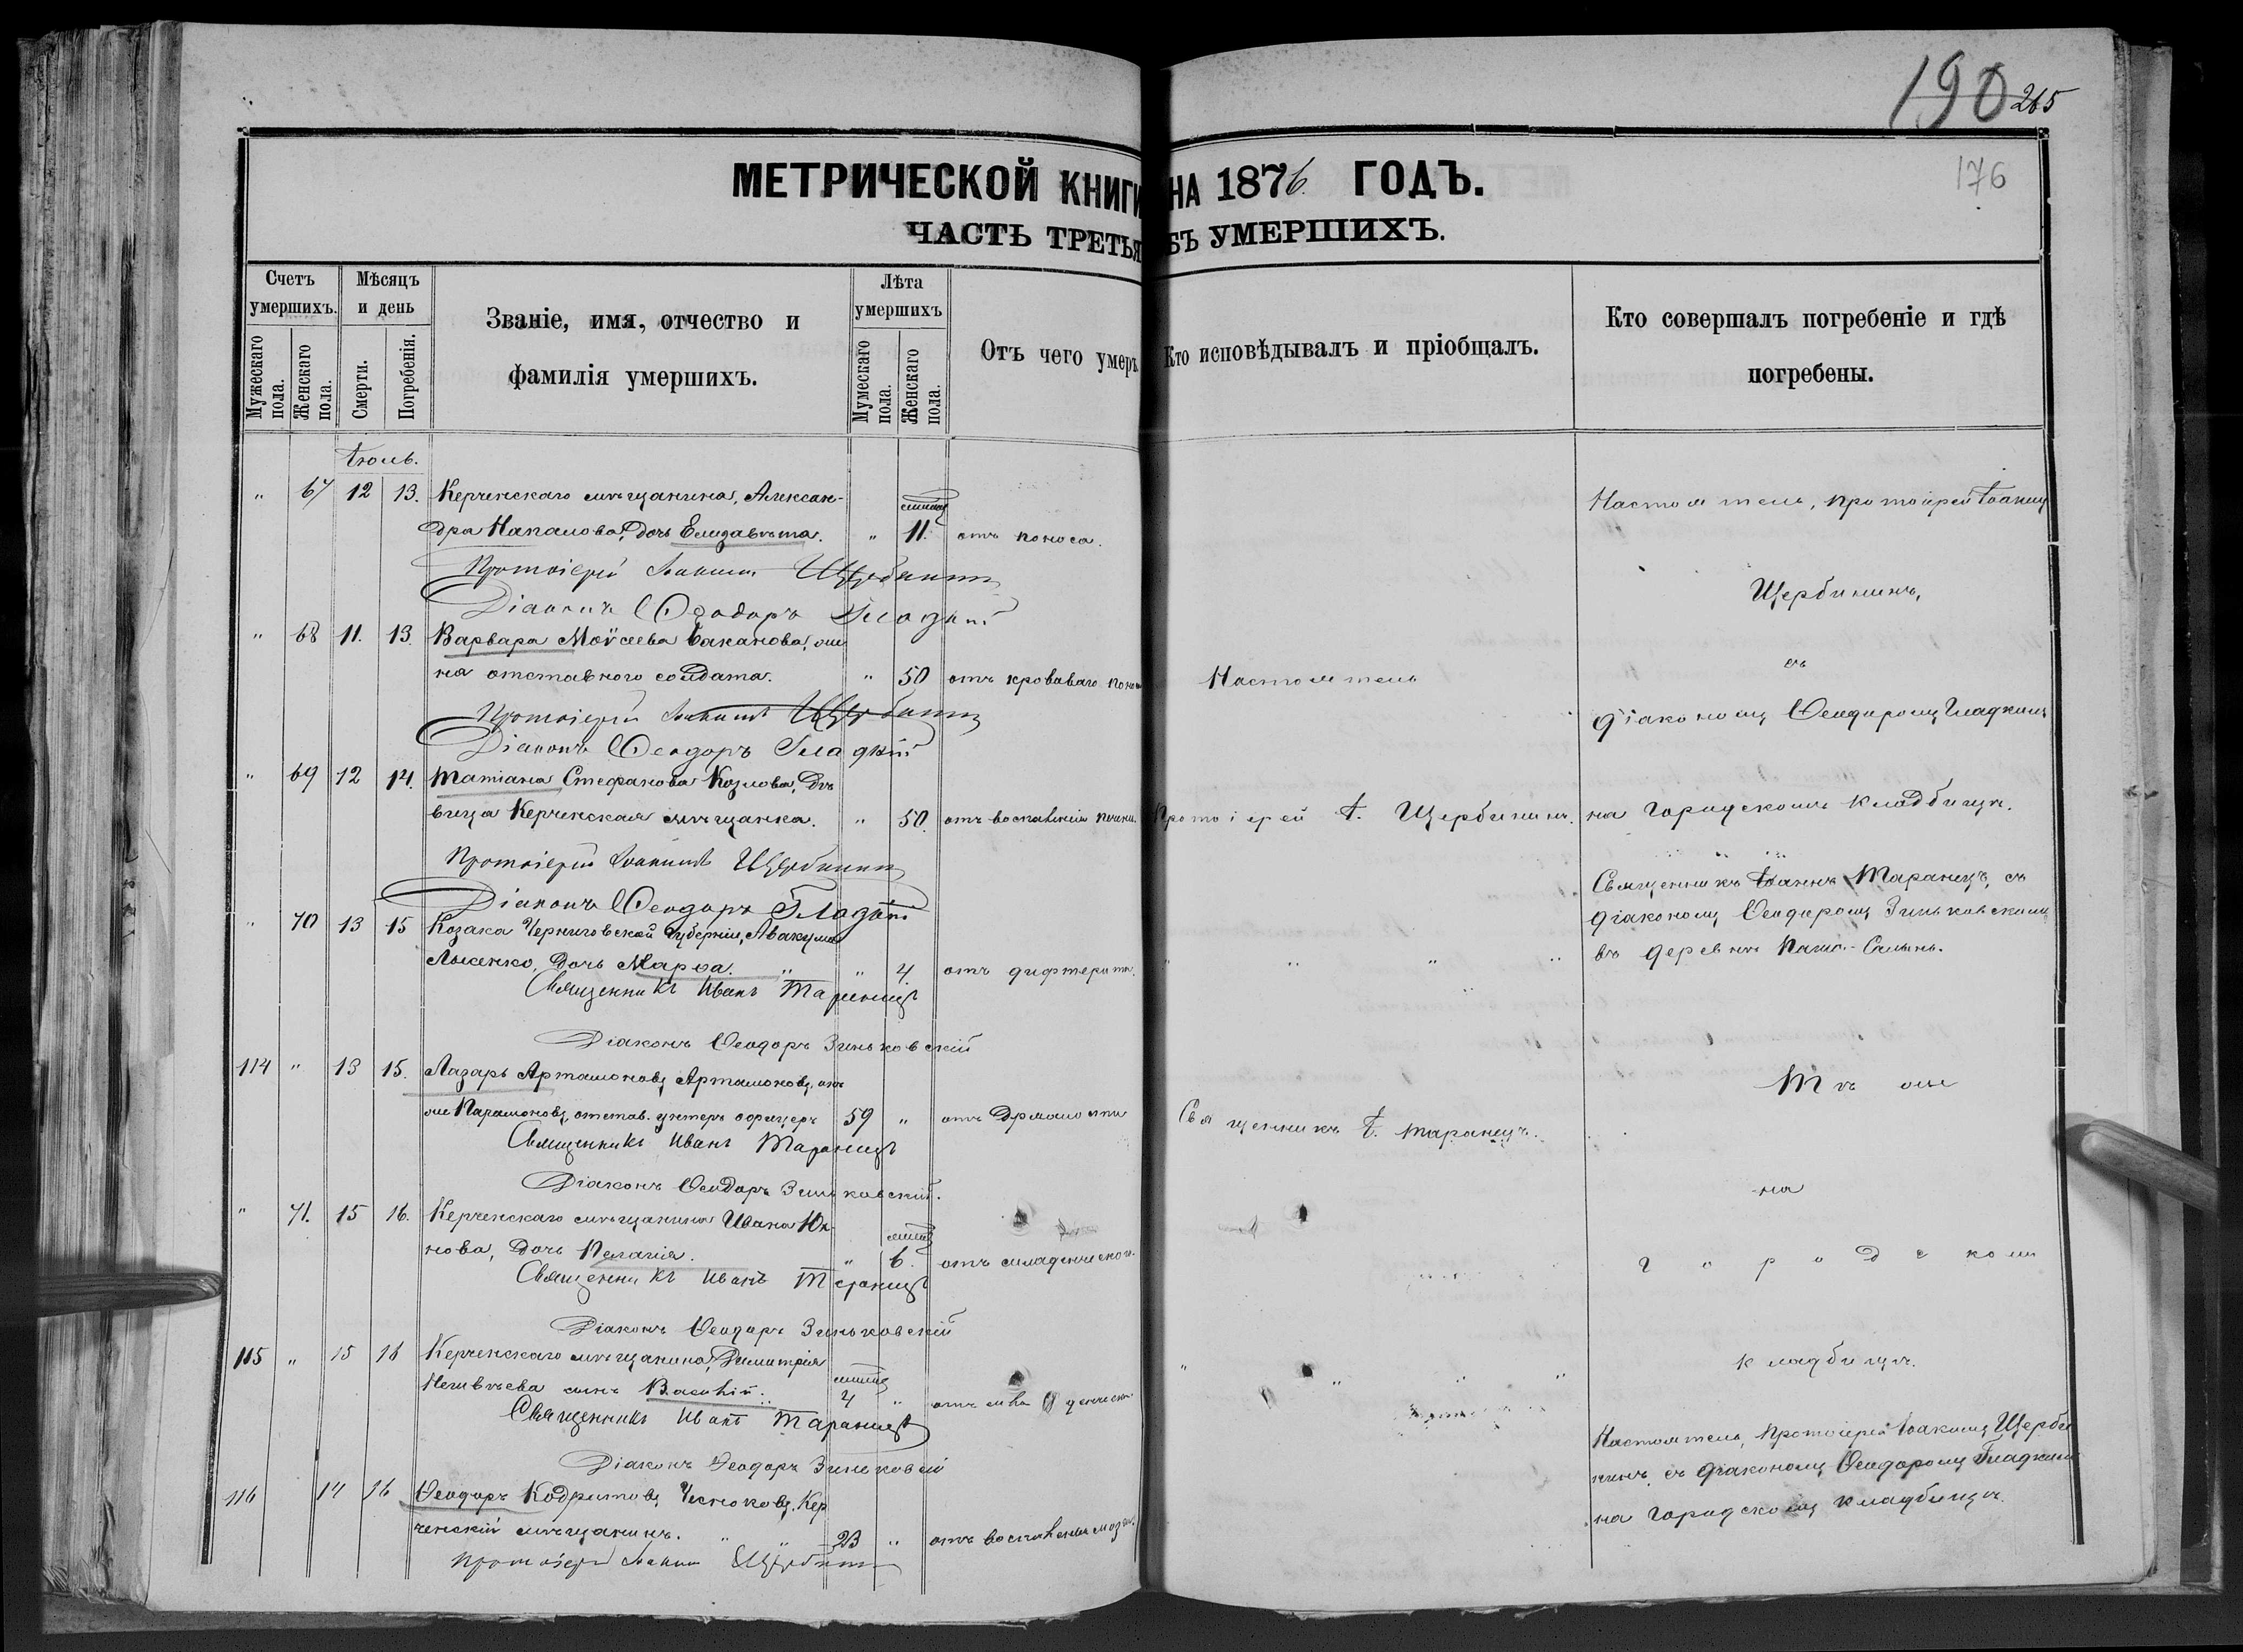 190 265
176
МЕТРИЧЕСКОЙ КНИГИ НА 1876 ГОДЪ.
ЧАСТЬ ТРЕТЬЯ БЪ УМЕРШИХЪ.
Счетъ умершихъ.
Мужескаго пола.
Женскаго пола.
Мѣсяцъ и день
Смерти.
Погребенія.
Званіе, имя, отчество и
фамилія умершихъ.
Лѣта умершихъ
Мужескаго пола.
Женскаго пола.
Отъ чего умеръ
Кто исповѣдывалъ и пріобщалъ.
Кто совершалъ погребеніе и гдѣ
погребены.
Іюль.
" 67 12 13. Керченскаго мѣщанина, Алексан-
дра Напалова, дочь Елизавета. " 11. отъ поноса.
Настоятель, протоіерей Іоаннъ
Щербининъ,
Протоіерей Іоаннъ Щербининъ
Діаконъ Ѳеодоръ Гладкій
" 68 11. 13. Варвара Моѵсеева Баканова, же
на отставного солдата. " 50 отъ кроваваго поноса
Настоятель
съ
діакономъ Ѳеодоромъ Гладкимъ
Протоіерей Іоаннъ Щербининъ
Діаконъ Ѳеодоръ Гладкій
" 69 12 14. Татіана Стефанова Козлова, дѣ
вица Керченская мѣщанка. " 50. отъ воспаленія печени.
Протоіерей І. Щербининъ.
на городскомъ кладбищѣ.
Протоіерей Іоаннъ Щербининъ
Діаконъ Ѳеодоръ Гладкій
" 70 13 15 Козака Черниговской губерніи, Авакума
Лысенко, дочь Марѳа. " " 4. отъ дифтерита.
" " " "
Священникъ Іоаннъ Таранецъ, съ
діакономъ Ѳеодоромъ Зиньковскимъ
въ деревнѣ
Священникъ Иванъ Таранецъ
Діаконъ Ѳеодоръ Зиньковскій
114 " 13 15. Лазарь Артамоновъ Артамоновъ, онъ
же Парамоновъ, отстав. унтеръ офицеръ 59 " отъ дряхлости
Священникъ І. Таранецъ.
Тѣ же
Священникъ Иванъ Таранецъ
Діаконъ Ѳеодоръ Зиньковскій.
" 71. 15 16. Керченскаго мѣщанина Ивана
нова, дочь Пелагія. " 6. отъ младенческой
на
городскомъ
Священникъ Иванъ Таранецъ
Діаконъ Ѳеодоръ Зиньковскій
115 " 15 16 Керченскаго мѣщанина, Димитрія
сынъ Василій. 4 " отъ младенческой
" " " "
кладбищѣ.
Священникъ Иванъ Таранецъ
Діаконъ Ѳеодоръ Зиньковскій
116 14 16 Ѳеодоръ Чесноковъ, Кер
ченскій мѣщанинъ. " " 23 " отъ воспаленія мозга.
Настоятель, Протоіерей Іоаннъ Щерби
нинъ съ діакономъ Ѳеодоромъ Гладкимъ
на городскомъ кладбищѣ.
Протоіерей Іоаннъ Щербининъ